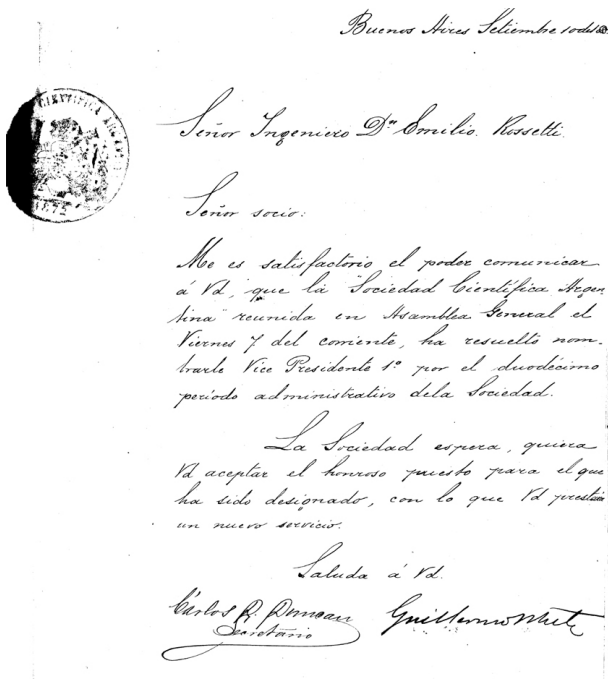 Buenos Aires Setiembre 10 de
CIENTIFICA ARGE
1872
Señor Ingeniero Dn Emilio Rossetti
Señor socio:
Me es satisfactorio el poder comunicar
á Vd, que la "Sociedad Científica Argen
tina" reunida en Asamblea General el
Viernes 7 del corriente, ha resuelto nom-
brarle Vice Presidente 1º por el duodécimo
período administrativo dela Sociedad.
La Sociedad espera, quiera
Vd aceptar el honroso puesto para el que
ha sido designado, con lo que Vd prestará
un nuevo servicio.
Saluda á Vd.
Cárlos R. Duncan Guillermo White
Secretario